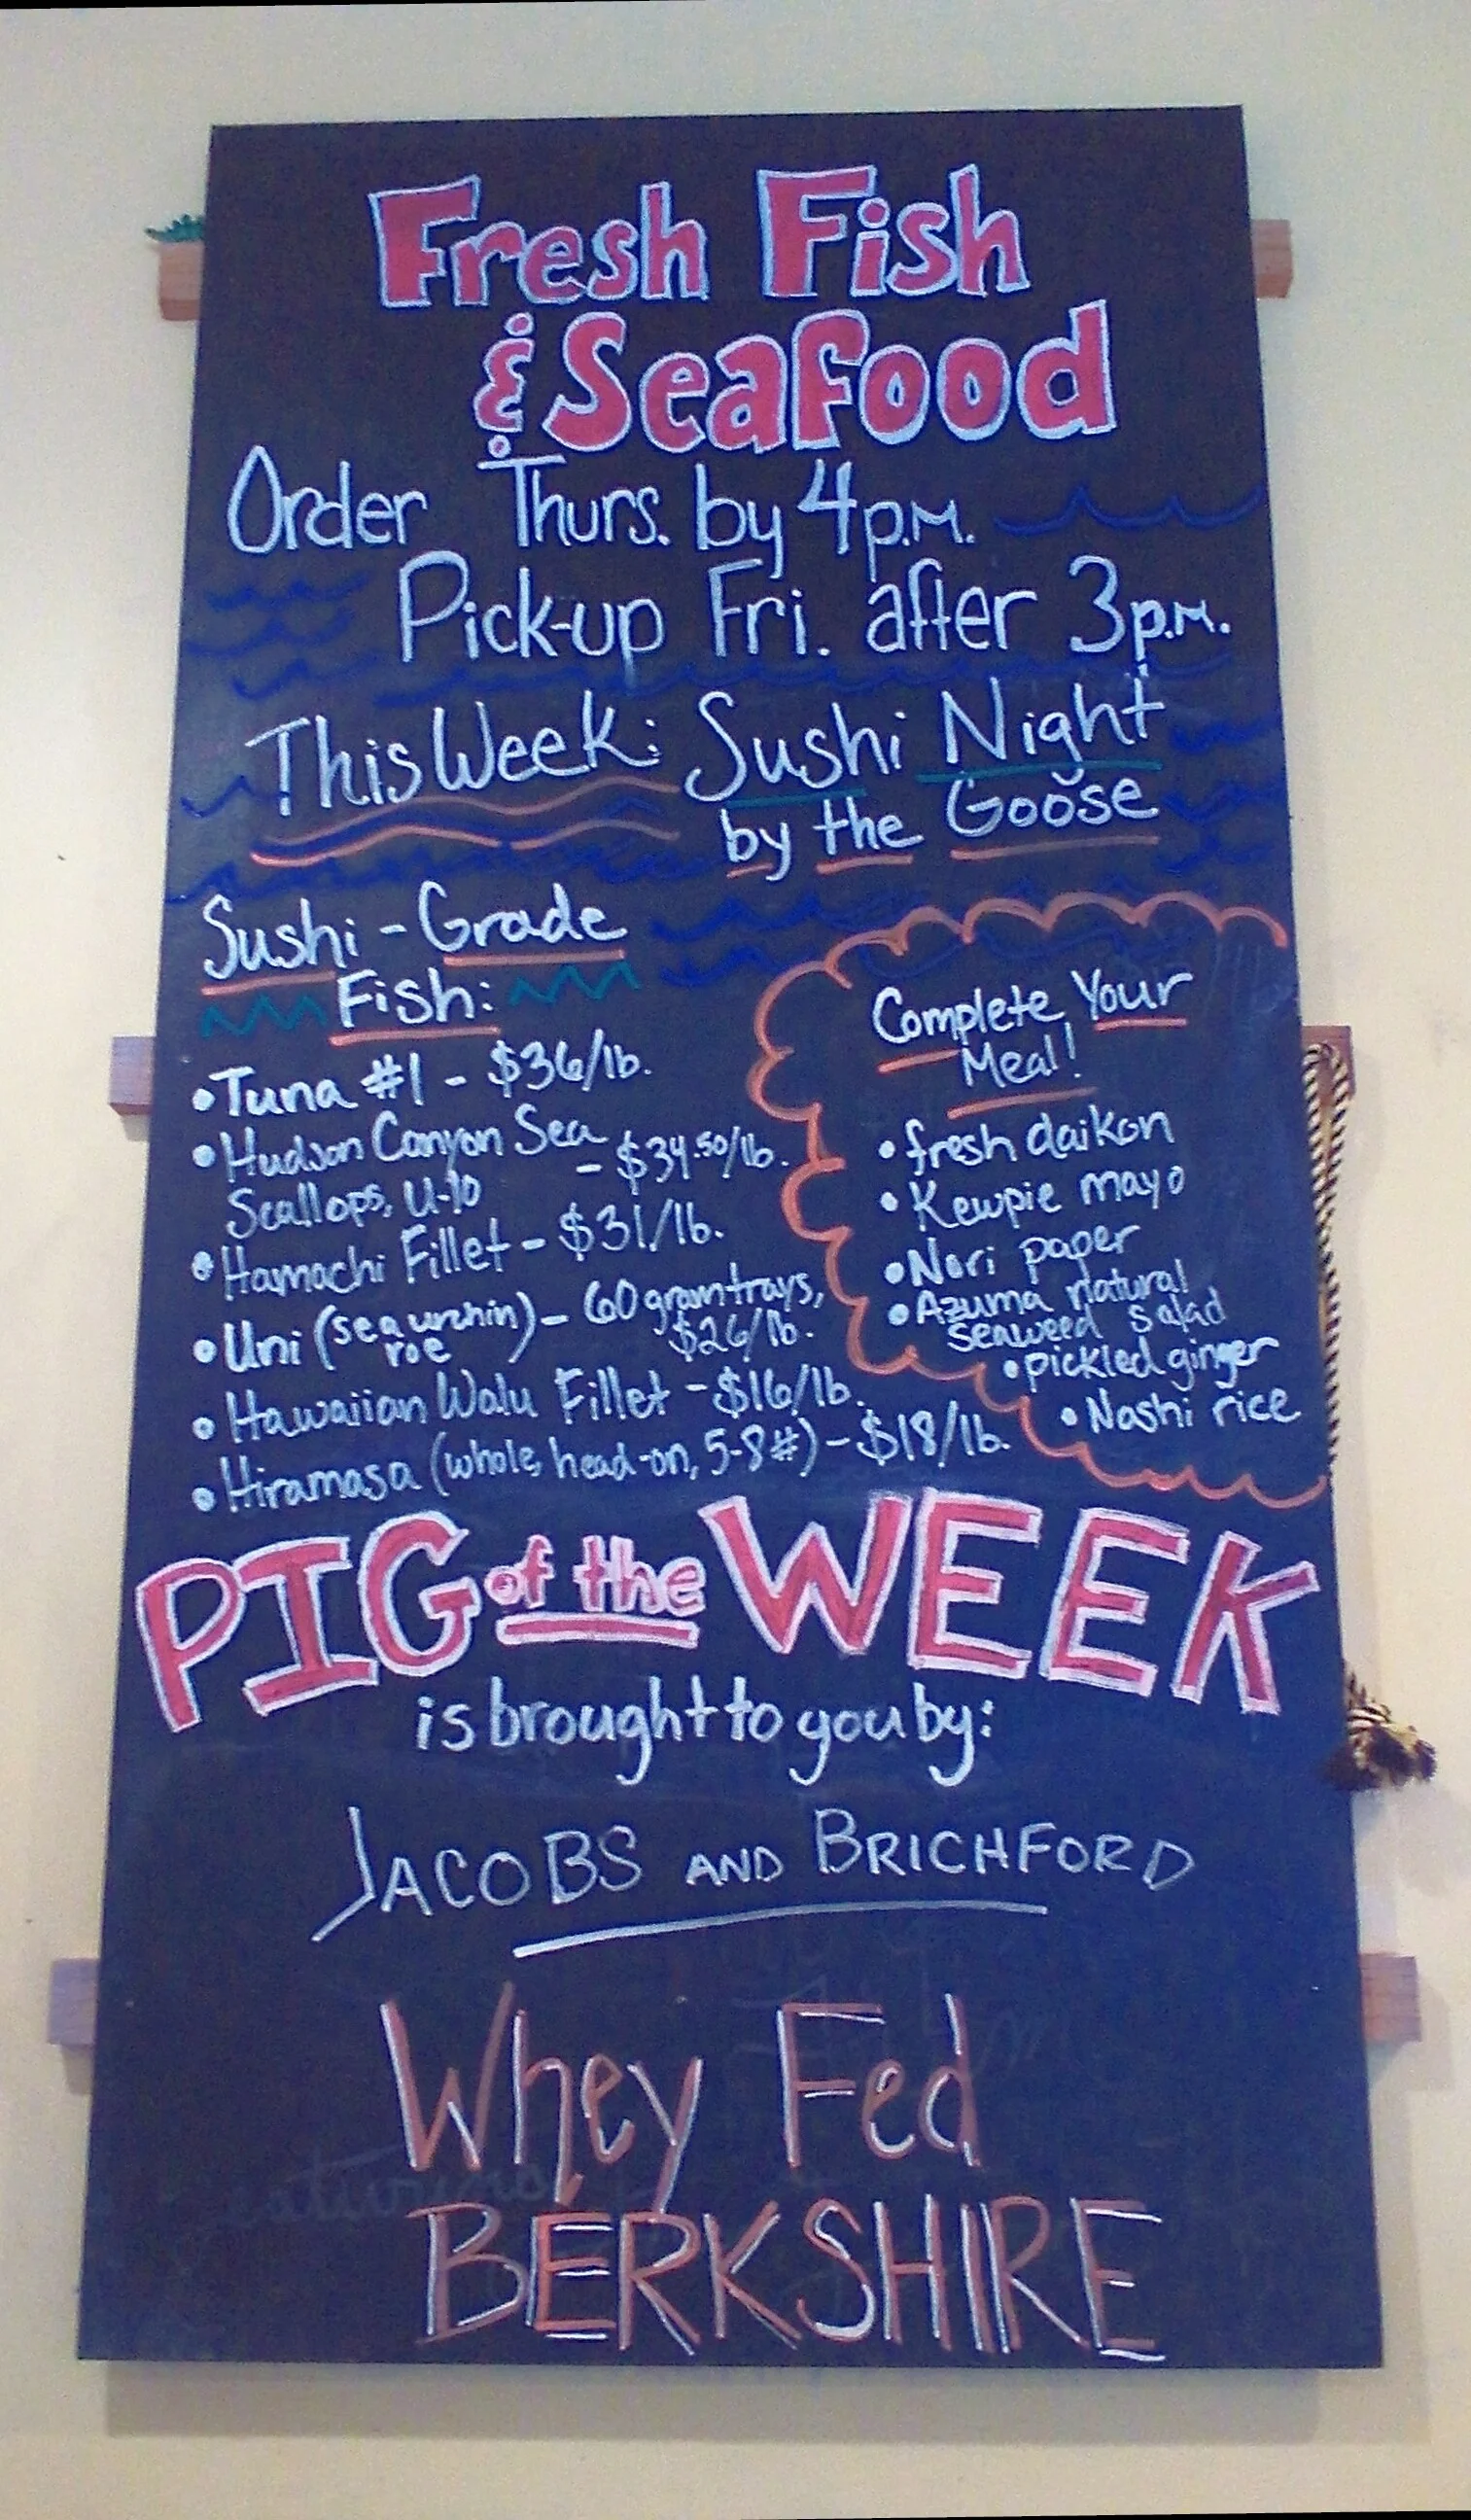 Fresh Fish
& Seafood
Order Thurs. by 4p.m.
Pick-up Fri. after 3p.m.
This Week: Sushi Night
by the Goose
Sushi-Grade
Fish:
• Tuna #1 - $36/lb.
• Hudson Canyon Sea
Scallops, U-10 - $34.50/lb.
• Hamachi Fillet - $31/lb.
• Uni (sea urchin roe) - 60 gram trays,
$26/lb.
• Hawaiian Walu Fillet - $16/lb.
• Hiramasa (whole, head-on, 5-8#) - $18/lb.
Complete Your
Meal!
• fresh daikon
• Kewpie mayo
• Nori paper
• Azuma natural
seaweed salad
• pickled ginger
• Nashi rice
PIG of the WEEK
is brought to you by:
JACOBS AND BRICHFORD
Whey Fed
BERKSHIRE